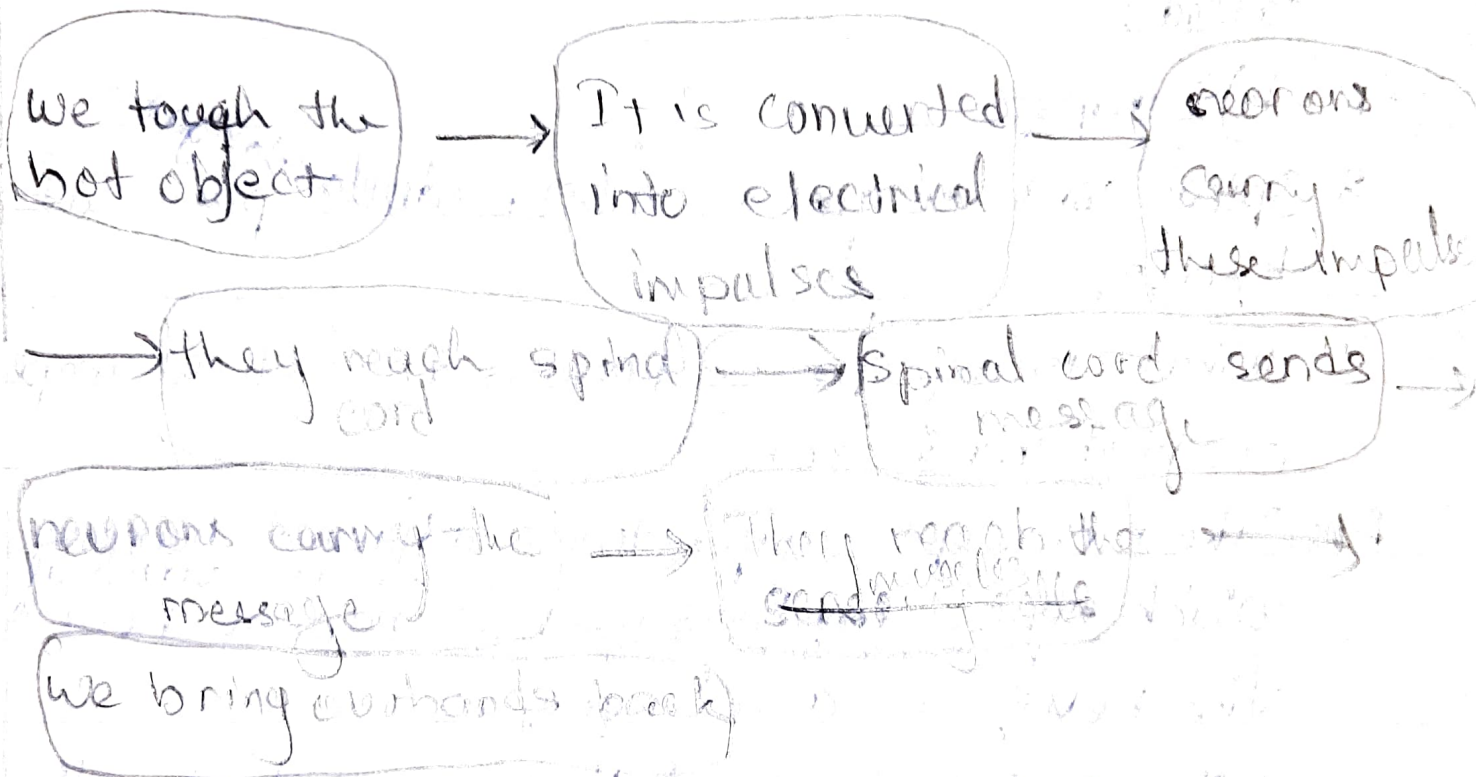 we tough the
hot object
It is converted
into electrical
impulses
neorons
carry
these impuls
they reach spinal
cord
spinal cord sends
message
neurons carry the
message
They reach the
muscles
we bring our hands back